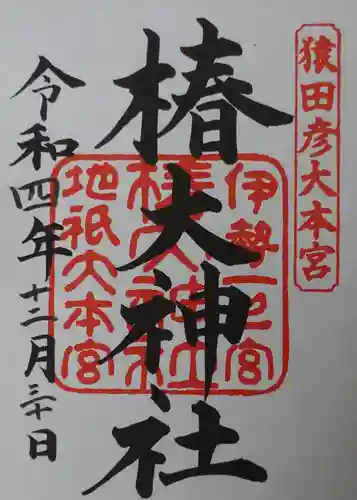 猿田彦大本宮
椿大神社
伊勢一宮
椿大神社
地祇大本宮
令和四年十二月三十日